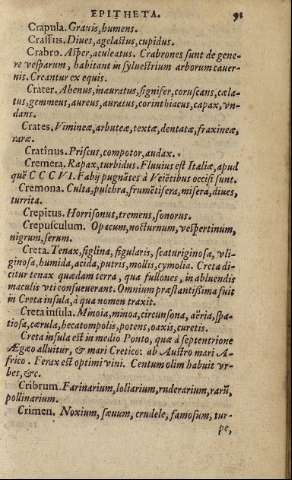 EPITHETA. 91
Crapula. Grauis, humens.
Crassus. Diues, agelastus, cupidus.
Crabro. Asper, aculeatus. Crabrones sunt de gene-
re vesparum, habitant in syluestrium arborum cauer-
nis. Creantur ex equis.
Crater. Ahenus, inauratus, signifer, coruscans, cæla-
tus, gemmeus, aureus, auratus, corinthiacus, capax, vn-
dans.
Crates. Vimineæ, arbuteæ, textæ, dentatæ, fraxineæ,
raræ.
Cratinus. Priscus, compotor, audax.
Cremera. Rapax, turbidus. Fluuius est Italiæ, apud
quē CCCVI. Fabij pugnātes à Veiētibus occisi sunt.
Cremona. Culta, pulchra, frumētifera, misera, diues,
turrita.
Crepitus. Horrisonus, tremens, sonorus.
Crepusculum. Opacum, nocturnum, vespertinum,
nigrum, serum.
Creta. Tenax, figlina, figularis, scaturiginosa, vli-
ginosa, humida, acida, putris, mollis, cymolia. Creta di-
citur tenax quædam terra, qua fullones, in abluendis
maculis vti consueuerant. Omnium præstantissima fuit
in Creta insula, à qua nomen traxit.
Creta insula. Minoia, minoa, circunsona, aëria, spa-
tiosa, cærula, hecatompolis, potens, oaxis, curetis.
Creta insula est in medio Ponto, quæ à septentrione
Ægæo alluitur, & mari Cretico: ab Austro mari A-
frico. Ferax est optimi vini. Centum olim habuit vr-
bes, &c.
Cribrum. Farinarium, loliarium, ruderarium, rarū,
pollinarium.
Crimen. Noxium, sæuum, crudele, famosum, tur-
pe,